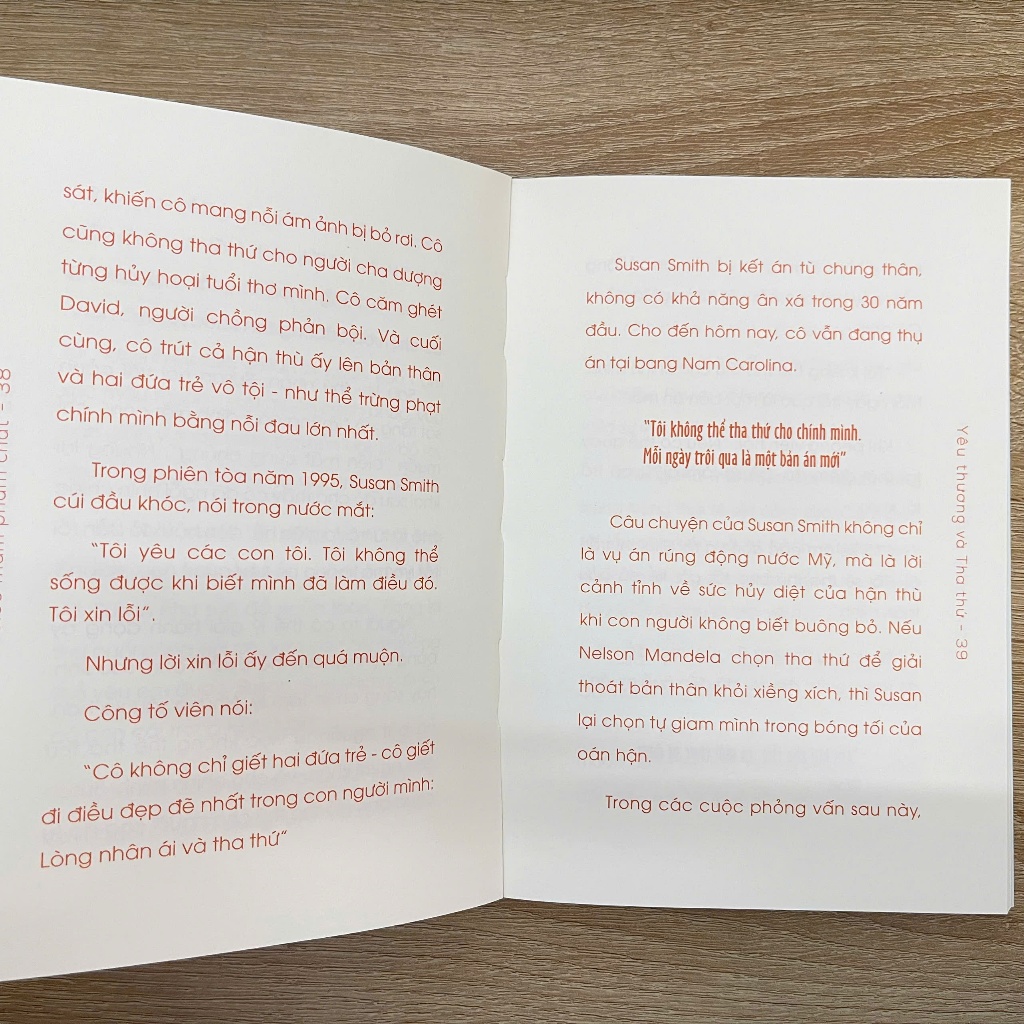 sát, khiến cô mang nỗi ám ảnh bị bỏ rơi. Cô
cũng không tha thứ cho người cha dượng
từng hủy hoại tuổi thơ mình. Cô căm ghét
David, người chồng phản bội. Và cuối
cùng, cô trút cả hận thù ấy lên bản thân
và hai đứa trẻ vô tội - như thể trừng phạt
chính mình bằng nỗi đau lớn nhất.
Trong phiên tòa năm 1995, Susan Smith
cúi đầu khóc, nói trong nước mắt:
“Tôi yêu các con tôi. Tôi không thể
sống được khi biết mình đã làm điều đó.
Tôi xin lỗi”.
Nhưng lời xin lỗi ấy đến quá muộn.
Công tố viên nói:
“Cô không chỉ giết hai đứa trẻ - cô giết
đi điều đẹp đẽ nhất trong con người mình:
Lòng nhân ái và tha thứ“
phẩm chất - 38
Susan Smith bị kết án tù chung thân,
không có khả năng ân xá trong 30 năm
đầu. Cho đến hôm nay, cô vẫn đang thụ
án tại bang Nam Carolina.
“Tôi không thể tha thứ cho chính mình.
Mỗi ngày trôi qua là một bản án mới”
Câu chuyện của Susan Smith không chỉ
là vụ án rúng động nước Mỹ, mà là lời
cảnh tỉnh về sức hủy diệt của hận thù
khi con người không biết buông bỏ. Nếu
Nelson Mandela chọn tha thứ để giải
thoát bản thân khỏi xiềng xích, thì Susan
lại chọn tự giam mình trong bóng tối của
oán hận.
Trong các cuộc phỏng vấn sau này,
Yêu thương và Tha thứ - 39